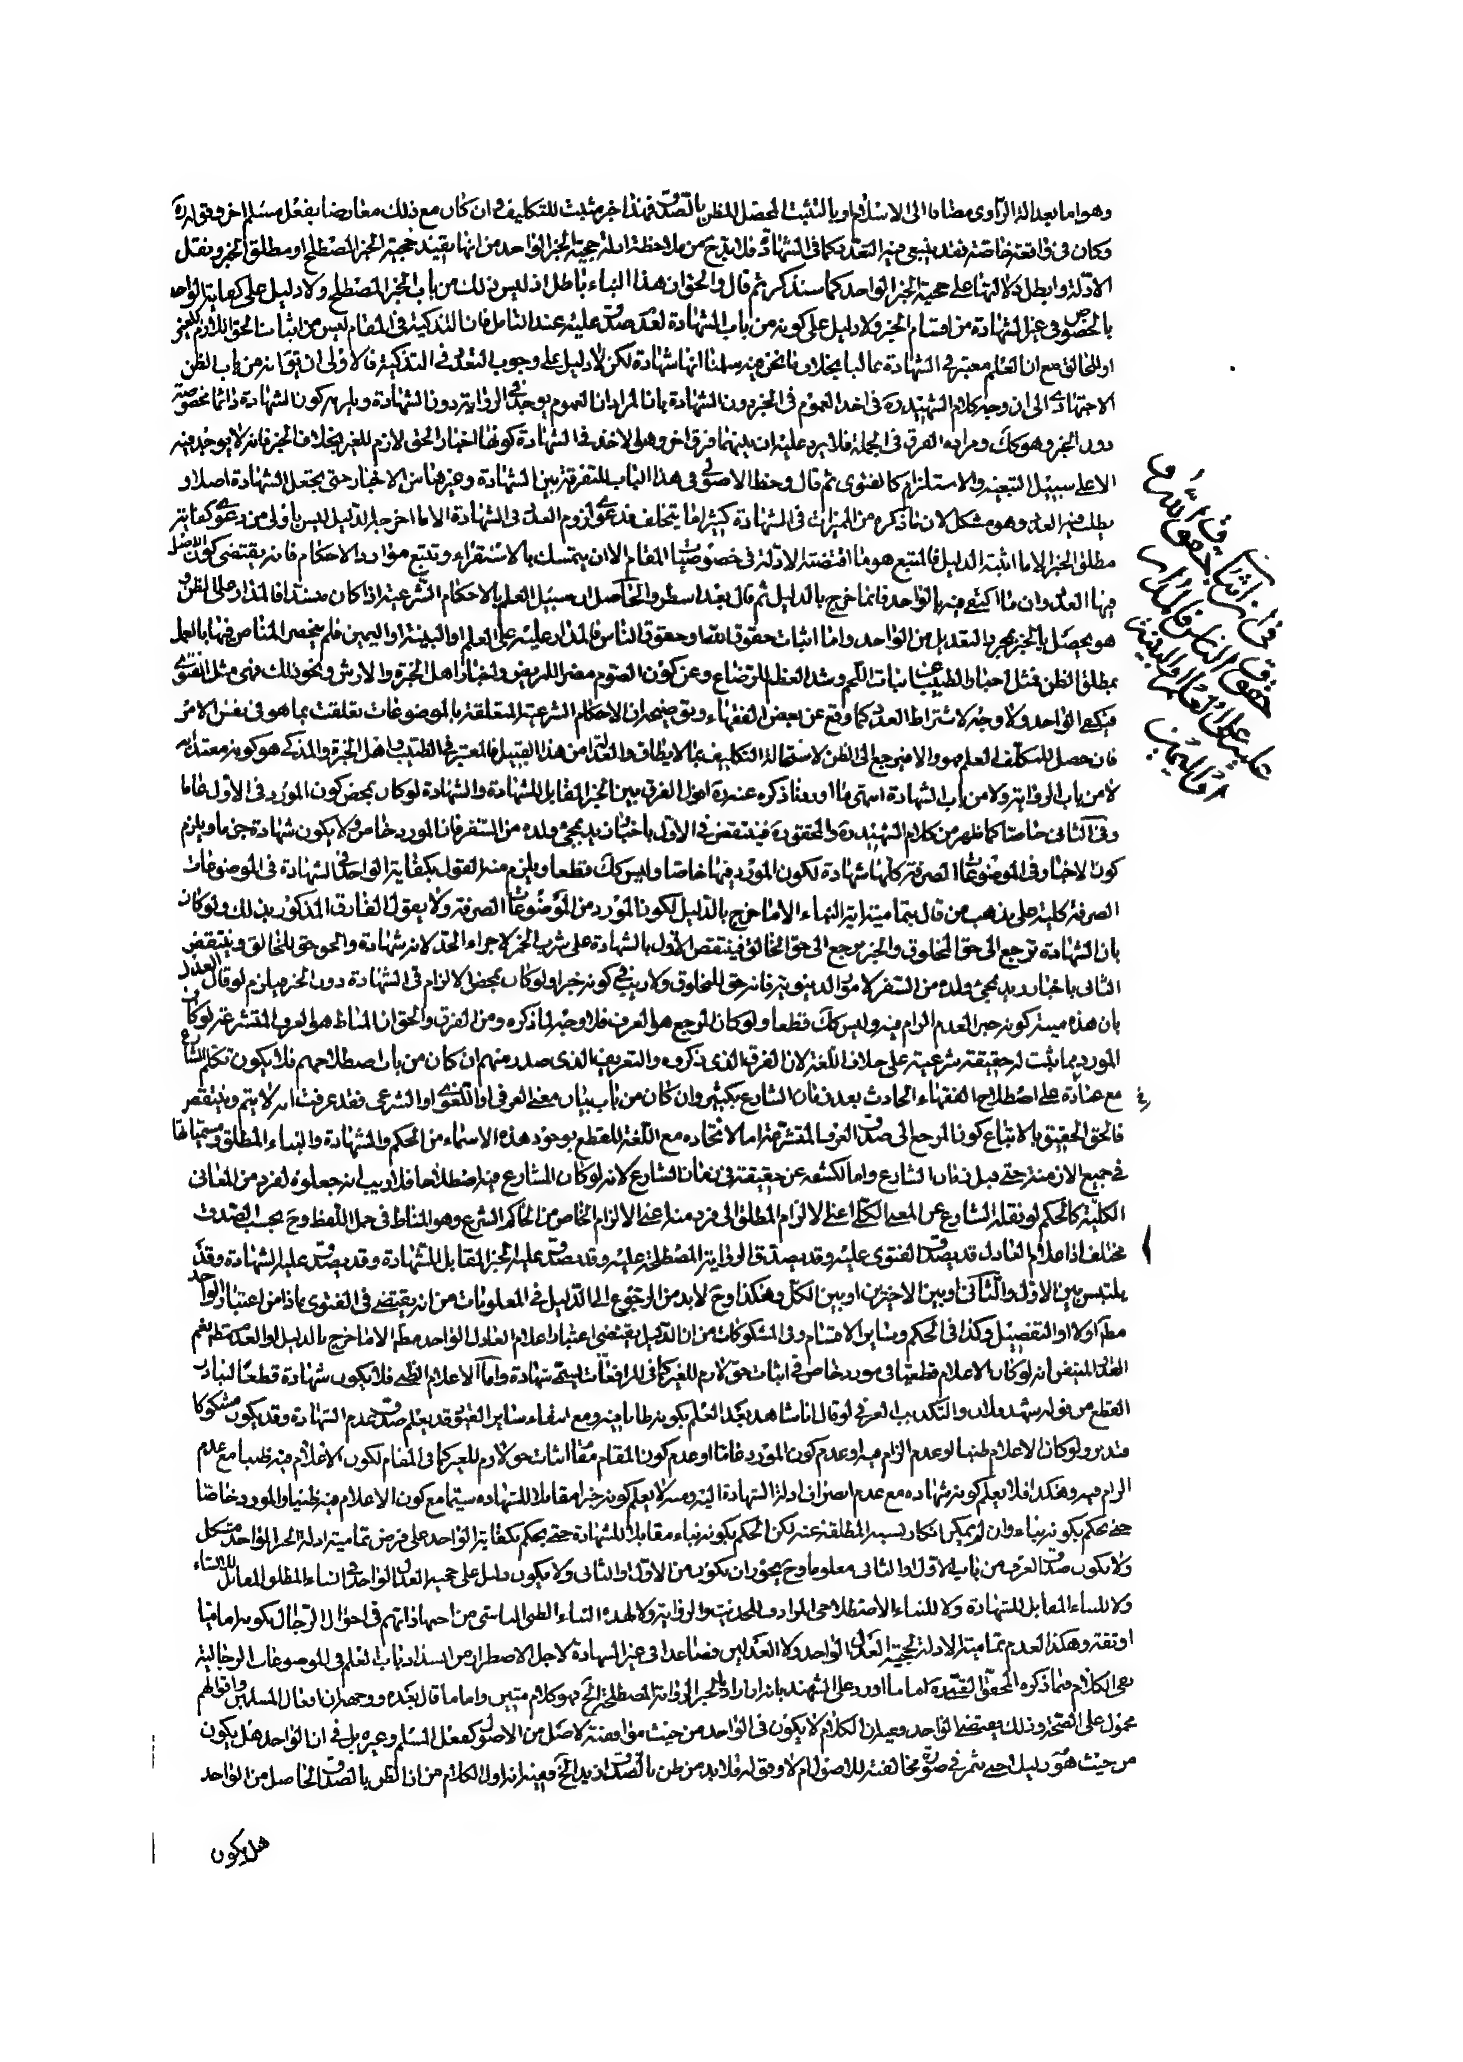 وهو اما بعدالة الراوى مضافا الى الاسلام او بالتثبت المحصل للظن بالصدق فهذا خبر مثبت للتكليف وان كان مع ذلك معارضا بفعل مسلم اخر وقوله
وكان فى واقعة خاصة فقد ينبغى فيه التعدد كما فى الشهادة فلا بد ح من ملاحظة ادلة حجية الخبر الواحد من انها يفيد حجية الخبر المصطلح او مطلق الخبر ونقل
الادلة وابطل دلالتها على حجية الخبر الواحد كما سنذكر ثم قال والحق ان هذا البناء باطل اذ ليس ذلك من باب الخبر المصطلح ولا دليل على كفاية الواحد
بالخصوص فى غير الشهادة من اقسام الخبر ولا دليل على كونه من باب الشهادة لعدم صدق عليه عند التامل فان التزكية فى المقام ليس من اثبات الحق اللازم للغير
او للخالق مع ان العلم معتبر فى الشهادة غالبا بخلاف ما نحن فيه سلمنا انها شهادة لكن لا دليل على وجوب التعدد فى التزكية فالاولى ان يق انه من باب الظن
الاجتهادى الى ان وجه كلام الشهيد ره فى اخذ العموم فى الخبر دون الشهادة بان المراد ان العموم يوجد فى الرواية دون الشهادة ويلزمه كون الشهادة دائما مخصوصة
دون الخبر وهو كك ومراده الفرق فى الجملة فلا يرد عليه ان بينهما فرق اخر وهو الاخذ فى الشهادة كونها اخبار الحق لازم للغير بخلاف الخبر فانه لا يوجد فيه
الا على سبيل التبعية والاستلزام كالفتوى ثم قال وحظ الاصولى فى هذا الباب التفرقة بين الشهادة وغيرها من الاخبار حتى يجعل الشهادة اصلا و
يطلب فيه العدد وهو مشكل لان ما ذكره من الميزان فى الشهادة كثيرا ما يتخلف فدعوى لزوم العدد فى الشهادة الا ما اخرجه الدليل ليس باولى من دعوى كفاية
مطلق الخبر الا ما اثبته الدليل فالمتبع هو ما اقتضته الادلة فى خصوصيات المقام الا ان يتمسك بالاستقراء وتتبع موارد الاحكام فانه يقتضى كون الاصل
فيها العدد وان ما اكتفى فيه بالواحد فانما خرج بالدليل ثم قال بعد اسطر والحاصل ان سبيل العلم بالاحكام الشرعية اذا كان منسدا فالمدار على الظن و
هو يحصل بالخبر مجردا لتعديل من الواحد واما اثبات حقوق الله وحقوق الناس فالمدار عليه على العلم او البينة او اليمين فلم ينحصر المناص فيها بالعمل
بمطلق الظن فمثل اخبار الطبيب عن انبات اللحم وشد العظم للرضاع وعن كون الصوم مضر اللمريض واخبار اهل الخبرة والارش ونحو ذلك فهى مثل الفتوى
فيكفى الواحد ولا وجه لاشتراط العدد كما وقع عن بعض الفقهاء وتوضيحه ان الاحكام الشرعية المتعلقة بالموضوعات تعلقت بما هو فى نفس الامر
فان حصل للمكلف العلم فهو والا فيرجع الى الظن لاستحالة التكليف بما لا يطاق والعدالة من هذا القبيل فالمعتبر فى الطبيب واهل الخبرة والمزكى هو كونه معتمدا
لا من باب الرواية ولا من باب الشهادة انتهى ما اوردنا ذكره عنه ره اقول الفرق بين الخبر المقابل للشهادة والشهادة لو كان بمحض كون المورد فى الاول عاما
وفى الثانى خاصا كما ظهر من كلام الشهيد ره والمحقق ره فينتقض فى الاول باخبار زيد بمجئ ولده من السفر فان المورد خاص ولا يكون شهادة جزما ويلزم
كون الاخبار فى الموضوعات الصرفة كلها شهادة لكون المورد فيها خاصا وليس كك قطعا ويلزم منه القول بكفاية الواحد فى الشهادة فى الموضوعات
الصرفة كلية على مذهب من قال بتمامية اية النباء الا ما خرج بالدليل لكون المورد من الموضوعات الصرفة ولا يعقل الفارق المذكور بذلك ولو كان
بان الشهادة ترجع الى حق المخلوق والخبر يرجع الى حق الخالق فينتقض الاول بالشهادة على شرب الخمر لاجراء الحد لانه شهادة والحق حق للخالق وينتقض
الثانى باخبار زيد بمجئ ولده من السفر لامور الدنيوية فانه حق للمخلوق ولا ريب فى كونه خبرا ولو كان بمحض الالزام فى الشهادة دون الخبر فيلزم لو قال العدل
بان هذه ميتة كونه خبرا لعدم الزام فيه وليس كك قطعا ولو كان المرجع هو العرف فلا وجه لما ذكره ومن الفرق والحق ان المناط هو العرف المتشرعة لو كان
المورد مما يثبت له حقيقة شرعية على خلاف اللغة لان الفرق الذى ذكروه والتعريف الذى صدر منهم ان كان من باب اصطلاحهم فلا يكون تكلم الشارع
مع عباده على اصطلاح الفقهاء الحادث بعد زمان الشارع بكثير وان كان من باب بيان معنى العرفى او اللغوى او الشرعى فقد عرفت انه لا يتم وينتقض
فالحق الحقيق بالاتباع كون المرجع الى صدق العرف المتشرعة اما لاتحاده مع اللغة للقطع بوجود هذه الاسماء من الحكم والشهادة والنباء المطلق ومسمياتها
فى جميع الازمنة حتى قبل زمان الشارع واما لكشفه عن حقيقة فى زمان الشارع لانه لو كان للشارع فيه اصطلاحا فلا ريب انه جعلوه لفرد من المعانى
الكلية كالحكم لو نقله الشارع عن المعنى الكلى اعنى الالزام المطلق الى فرد منه اعنى الالزام الخاص من الحاكم الشرع وهو المناط فى حمل اللفظ وح بحسب الصدق
مختلف اذ اعلام العادل قد يصدق الفتوى عليه وقد يصدق الرواية المصطلحة عليه وقد يصدق عليه الخبر المقابل للشهادة وقد يصدق عليه الشهادة وقد
يلتبس بين الاول والثانى او بين الاخيرين او بين الكل وهكذا وح لابد من الرجوع الى الدليل فى المعلومات من انه يقتضى فى الفتوى ماذا من اعتبار الواحد
مطم اولا او التفصيل وكذا فى الحكم وساير الاقسام وفى المشكوكات من ان الدليل يقتضى اعتبار اعلام العادل الواحد مطم الا ما خرج بالدليل او العدم مطم نعم
القدر المتيقن انه لو كان الاعلام قطعيا فى مورد خاص فى اثبات حق لازم للغير كما فى المرافعات يسمى شهادة واما الاعلام الظنى فلا يكون شهادة قطعا لتبادر
القطع من قوله شهد فلان والتكذيب العرفى لو قال انا شاهد بعد العلم بكونه ظانا فيه ومع انتفاء ساير القيود قد يعلم صدق عدم الشهادة وقد يكون مشكوكا
فتدبر ولو كان الاعلام ظنيا لو عدم الزام فيه او عدم كون المورد عاما او عدم كون المقام مقام اثبات حق لازم للغير كما فى المقام لكون الاعلام فيه ظنيا مع عدم
الزام فيه وهكذا فلا يعلم كونه شهادة مع عدم انصراف ادلة الشهادة اليه ومنه لا يعلم كونه خبرا مقابلا للشهادة سيما مع كون الاعلام فيه ظنيا والمورد خاصا
حتى يحكم بكونه نباء وان لم يمكن انكار نسبة المطلقة عنه لكن الحكم بكونه نباء مقابلا للشهادة حتى يحكم بكفاية الواحد على فرض تمامية ادلة الخبر الواحد مشكل
ولا يكون صدق العرف من باب الاول والثانى معلوما وح يجوز ان يكون من الاول او الثانى ولا يكون دليل على حجية العدل الواحد فى النباء المطلق المقابل للانشاء
ولا للنباء المقابل للشهادة ولا للنباء الاصطلاحى المرادف للحديث والرواية ولا لهذه النباء الظنى الناشى من اجتهاداتهم فى احوال الرجال بكونه اماميا
او ثقة وهكذا لعدم تمامية الادلة لحجية العدل الواحد ولا العدلين فصاعدا فى غير الشهادة لاجل الاضطرار من انسداد باب العلم فى الموضوعات الرجالية
بقى الكلام فيما ذكره المحقق القمى ره اما ما اورد على الشهيد بانه ان اراد بالخبر الرواية المصطلحة الخ فهو كلام متين واما ما قال بعده ووجهه ان افعال المسلمين واقوالهم
محمول على الصحة وذلك يقتضى الواحد وفيه ان الكلام لا يكون فى الواحد من حيث موافقته لاصل من الاصول كفعل المسلم وغيره بل فى ان الواحد هل يكون
من حيث هو دليل احتى يثمر فى صورة مخالفته للاصول ام لا وقوله فلا بد من ظن بالصدق ازيد الخ ففيه انه اول الكلام من ان الظن بالصدق الحاصل من الواحد
هل يكون